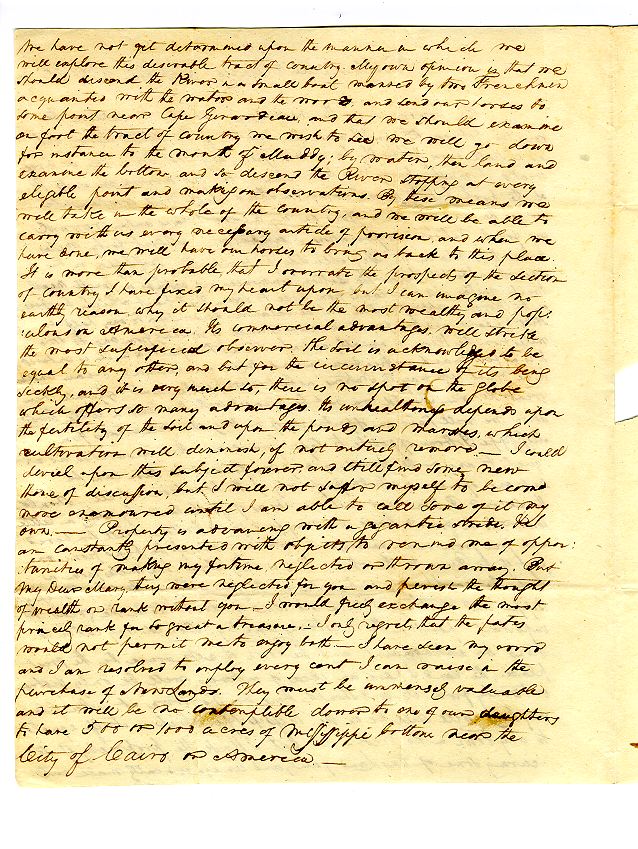 We have not yet determined upon the manner in which we
will explore this desirable tract of country. My own opinion is that we
should descend the River in a small boat manned by two Frenchmen
acquainted with the water and the woods, and send our horses to
some point near Cape Girardeau, and that we should examine
on foot the tract of country we wish to see. we will go down
for instance to the mouth of Muddy; by water, then land and
examine the bottom and so descend the River stopping at every
eligible point and making our observations. By these means we
will take in the whole of the country, and we will be able to
carry with us every necessary article of provision, and when we
have done, we will have our horses to bring us back to this place.
It is more than probable, that I overrate the prospects of the section
of country I have fixed my heart upon, but I can imagine no
earthly reason why it should not be the most wealthy and pop:
:ulous on America. Its commercial advantages will strike
the most superficial observer. The soil is acknowledged to be
equal to any other, and but for the circumstance of its being
sickly, and it is very much so, there is no spot on the Globe
which offers so many advantages. Its unhealthiness depends upon
the fertility of the soil and upon the ponds and marshes, which
cultivation will diminish, if not entirely remove. — I could
dwell upon this subject forever, and still find some new
theme of discussion, but I will not suffer myself to become
more enamoured until I am able to call some of it my
own. — Property is advancing with a gigantic stride. &
am constantly presented with objects, to remind me of oppor:
:tunities of making my fortune neglected or thrown away. But
My Dear Mary, they were neglected for you and perish the thought
of wealth or rank without you — I would freely exchange the most
princely rank for so great a treasure, — I only regret, that the fates
would not permit me to enjoy both. — I have been my word
and I am resolved to employ every cent I can raise in the
purchase of New Lands. They must be immensely valuable
and it will be no contemptible dower to one of our daughters
to have 500 or 1000 acres of Mississippi bottom near the
City of Cairo or America. —